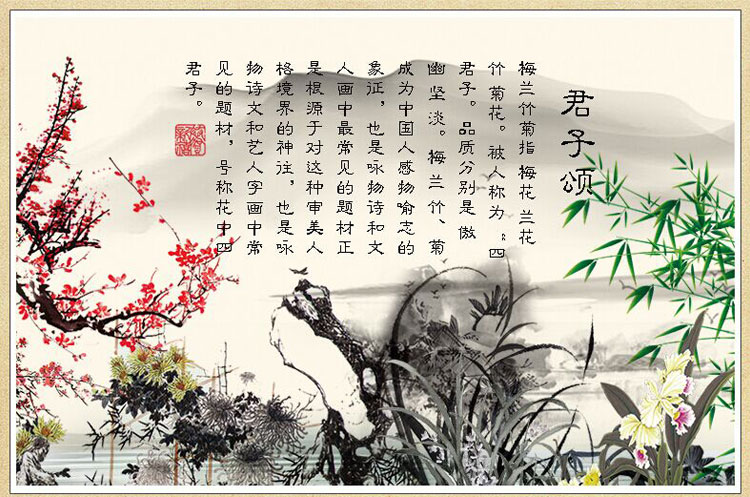 君子颂
梅兰竹菊指梅花 兰花
竹 菊花。被人称为“四
君子。品质分别是 傲
幽 坚 淡。梅 兰 竹、菊
成为中国人感物喻志的
象征，也是咏物诗和文
人画中最常见的题材正
是根源于对这种审美人
格境界的神往，也是咏
物诗文和艺人字画中常
见的题材，号称花中四
君子。